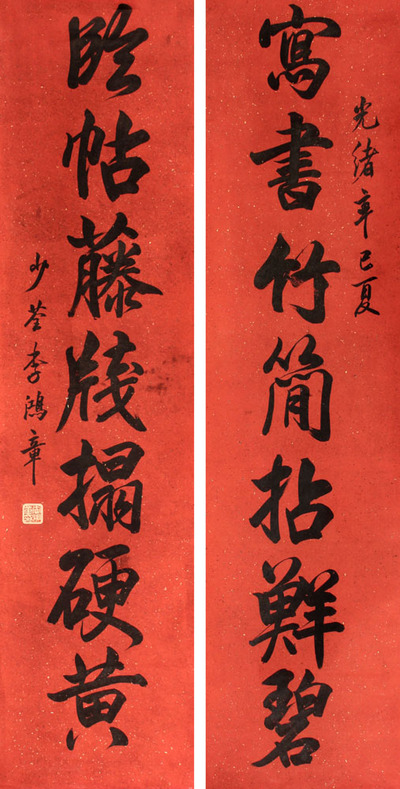 光緒辛巳夏
寫書竹簡拈鮮碧
臨帖藤牋搨硬黃
少荃李鴻章